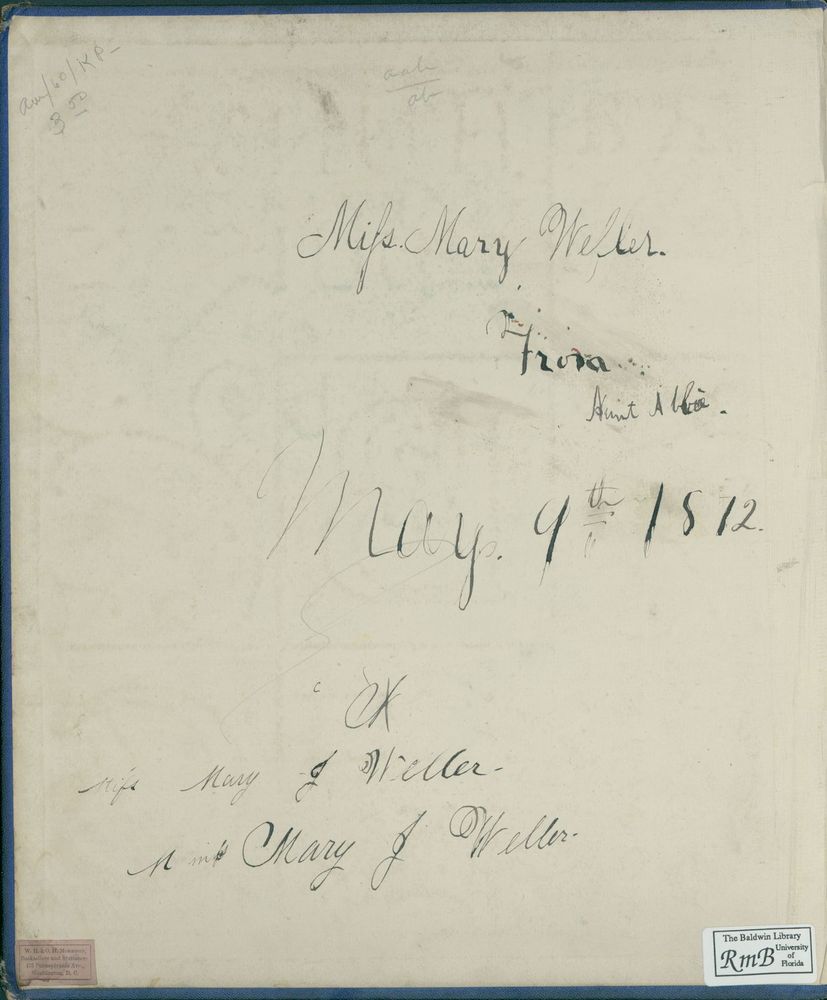 3 00
aah
ab
Miss. Mary Weller.
From
Aunt Abbie.
May. 9th 1872.
Miss Mary J Weller-
Mary J Weller-
W. H. & O. H. Morrison,
Booksellers and Stationers
475 Pennsylvania Ave.,
Washington, D. C.
The Baldwin Library
RmB University
of
Florida